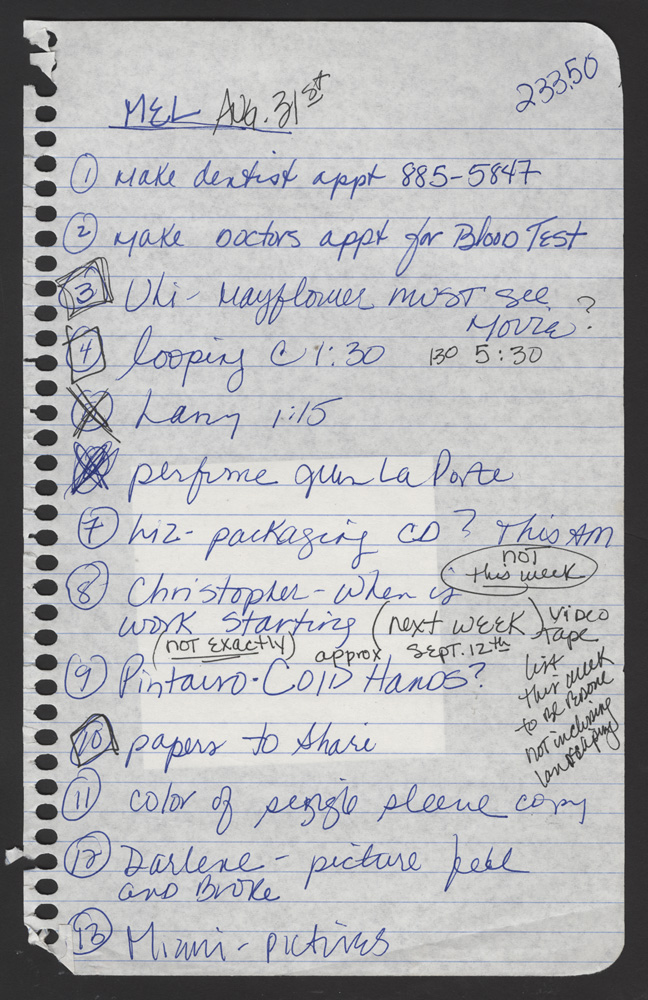 233.50
MEL Aug. 31st
1 make dentist appt 885-5847
2 make Doctors appt for Blood Test
3 Uli - Mayflower must see
Movie?
4 looping @ 1:30 130 5:30
Larry 1:15
perfume La Porte
7 Liz - packaging CD? This AM
not
this week
8 Christopher - when is
work starting (next WEEK) Video
tape
(not exactly) approx Sept. 12th
List
this week
to be Done
not including
landscaping
9 Pintauro · Cold Hands?
10 papers to Share
11 color of sleeve copy
12 Darlene - picture
and Broke
13 Miami - pictures